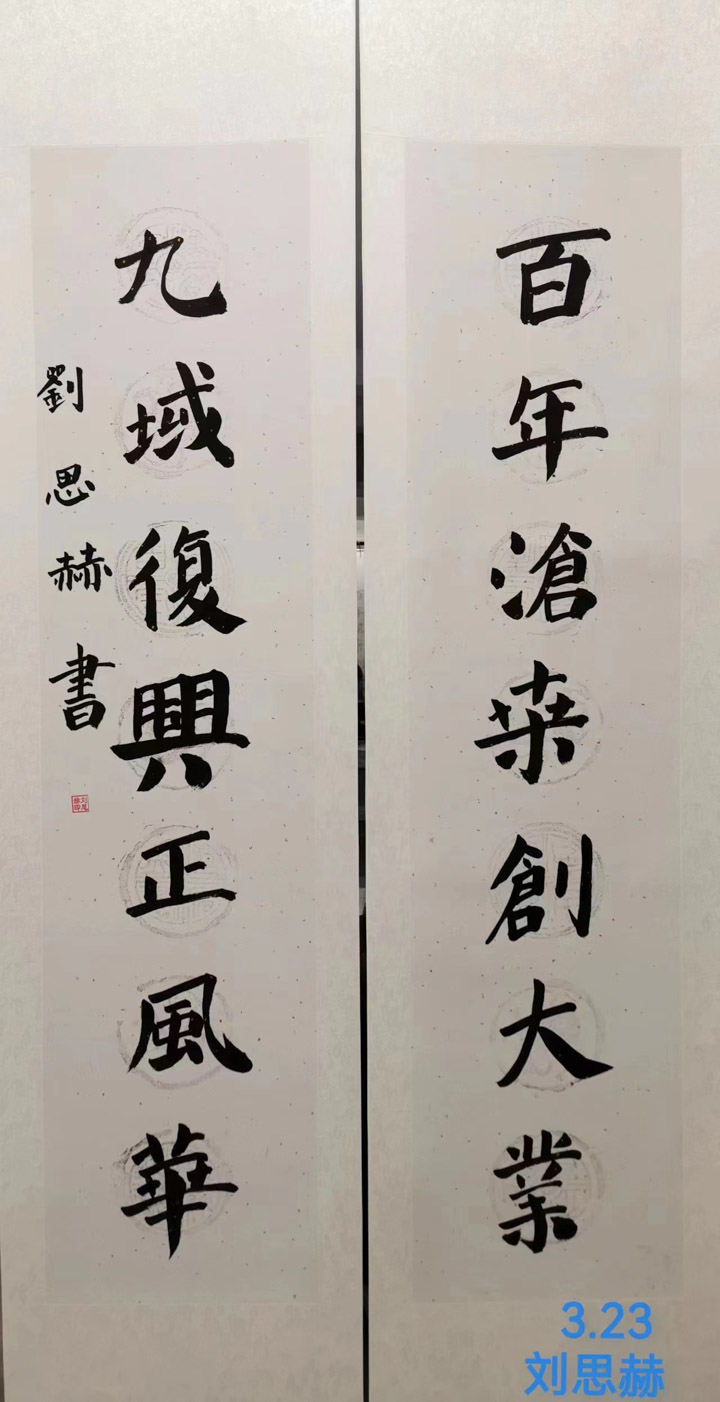 百年滄桒創大業
九域復興正風華
劉思赫書
3.23
刘思赫